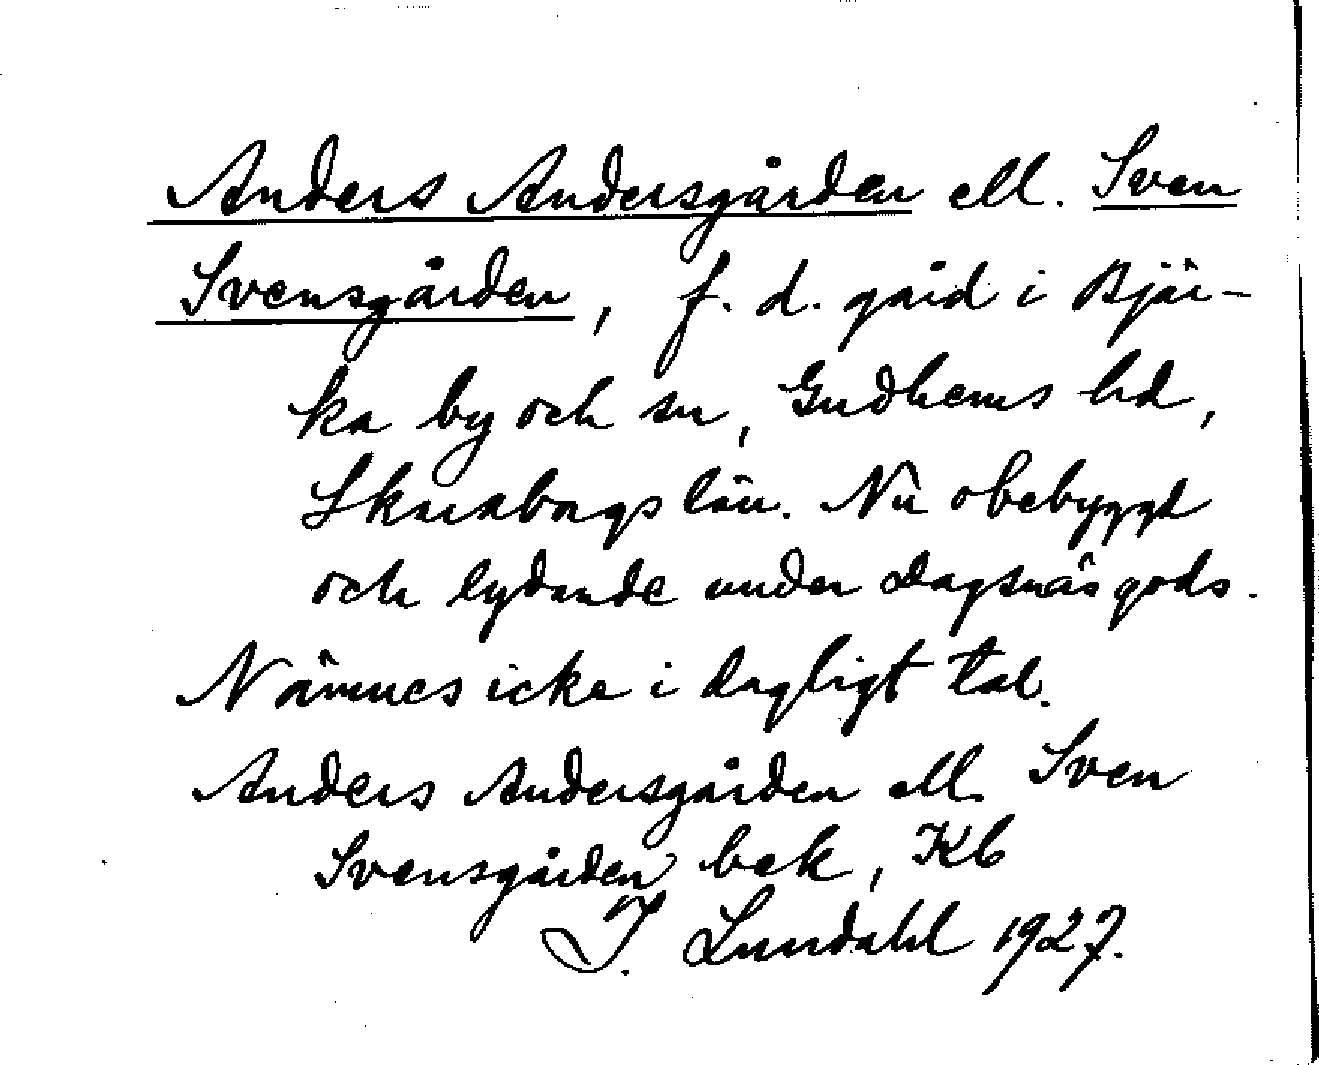 Anders Andersgården ell. Sven
Svensgården, f. d. gård i Bjär-
ka by och sn, Gudhems hd,
Skaraborgs län. Nu obebyggt
och lydande under Dagsnäs gods.
Nämnes icke i dagligt tal.
Anders Andersgården ell. Sven
Svensgården bek, Kb
I. Lundahl 1927.